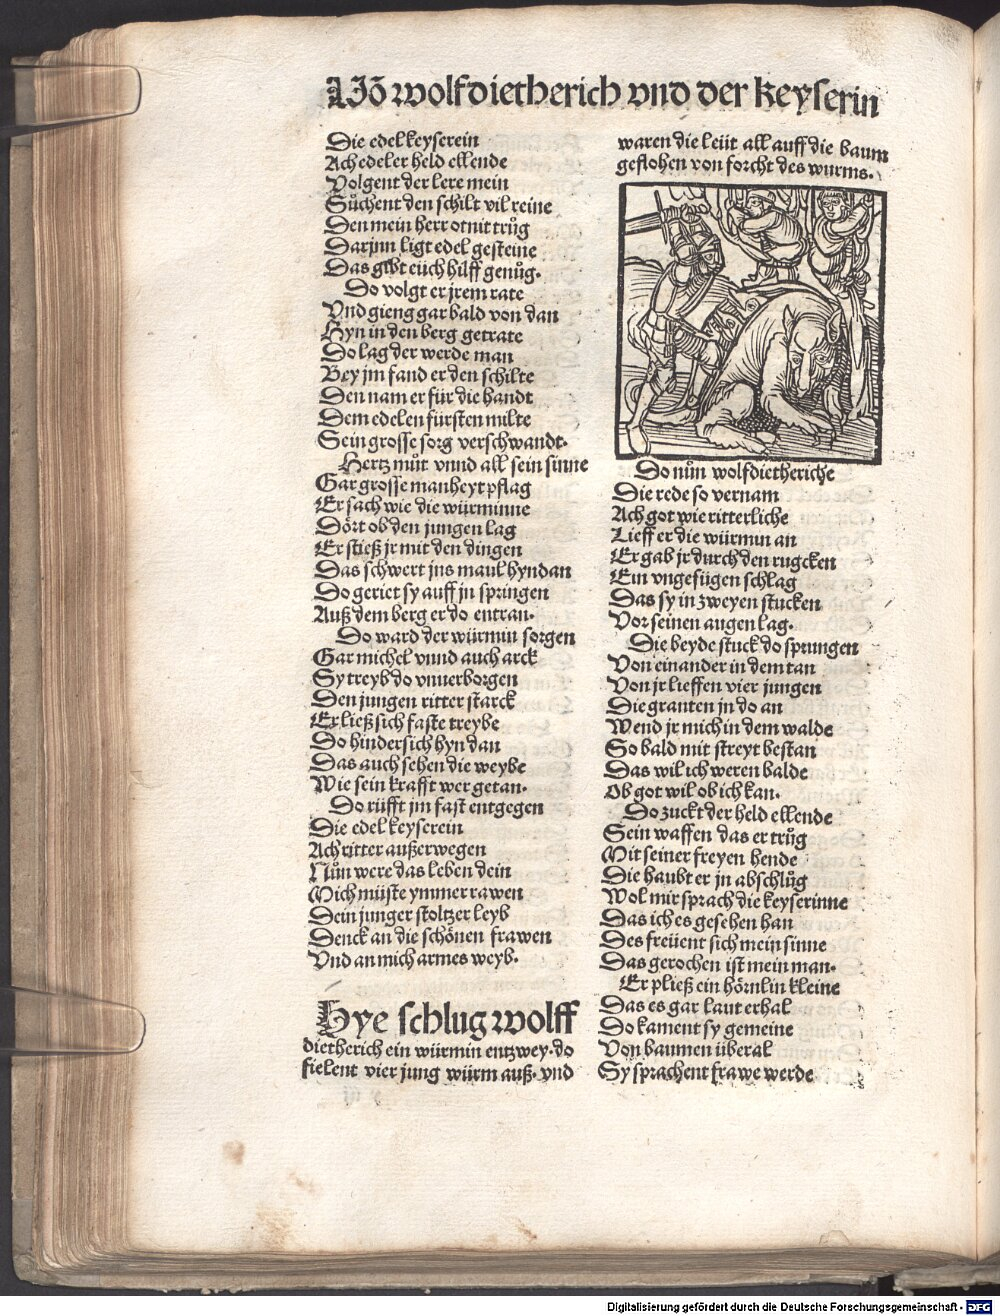 Võ wolfdietherich vnd der keyserin
Die edel keyserein
Ach edeler held ellende
Volgent der lere mein
Sůchent den schilt vil reine
Den mein herr otnit trůg
Darjnn ligt edel gesteine
Das gibt eüch hilff genůg.
Do volgt er jrem rate
Vnd gieng gar bald von dan
Hyn in den berg getrate
Do lag der werde man
Bey jm fand er den schilte
Den nam er für die handt
Dem edelen fürsten milte
Sein grosse sorg verschwandt.
Hertz můt vnnd all sein sinne
Gar grosse manheyt pflag
Er sach wie die würminne
Dört ob den jungen lag
Er stieß jr mit den dingen
Das schwert jns maul hyndan
Do geriet sy auff jn springen
Auß dem berg er do entran.
Do ward der würmin sorgen
Gar michel vnnd auch arck
Sy treyb do vnuerborgen
Den jungen ritter starck
Er ließ sich faste treybe
Do hindersich hyn dan
Das auch sehen die weybe
Wie sein krafft wer getan.
Do rüfft jm fast entgegen
Die edel keyserein
Ach ritter außerwegen
Nůn were das leben dein
Mich müste ymmer rawen
Dein junger stoltzer leyb
Denck an die schönen frawen
Vnd an mich armes weyb.
Hye schlug wolff
dietherich ein würmin entzwey. do
fielent vier jung würm auß. vnd
waren die leüt all auff die baum
geflohen von forcht des wurms.
Do nůn wolfdietheriche
Die rede so vernam
Ach got wie ritterliche
Lieff er die würmin an
Er gab jr durch den rugcken
Ein vngefügen schlag
Das sy in zweyen stucken
Vor seinen augen lag.
Die beyde stuck do sprungen
Von einander in dem tan
Von jr lieffen vier jungen
Die granten jn do an
Wend jr mich in dem walde
So bald mit streyt bestan
Das wil ich weren balde
Ob got wil ob ich kan.
Do zuckt der held ellende
Sein waffen das er trůg
Mit seiner freyen hende
Die haubt er jn abschlůg
Wol mir sprach die keyserinne
Das ich es gesehen han
Des freüent sich mein sinne
Das gerochen ist mein man.
Er pließ ein hörnlin kleine
Das es gar laut erhal
Do kament sy gemeine
Von baumen überal
Sy sprachent frawe werde
Digitalisierung gefördert durch die Deutsche Forschungsgemeinschaft - DFG